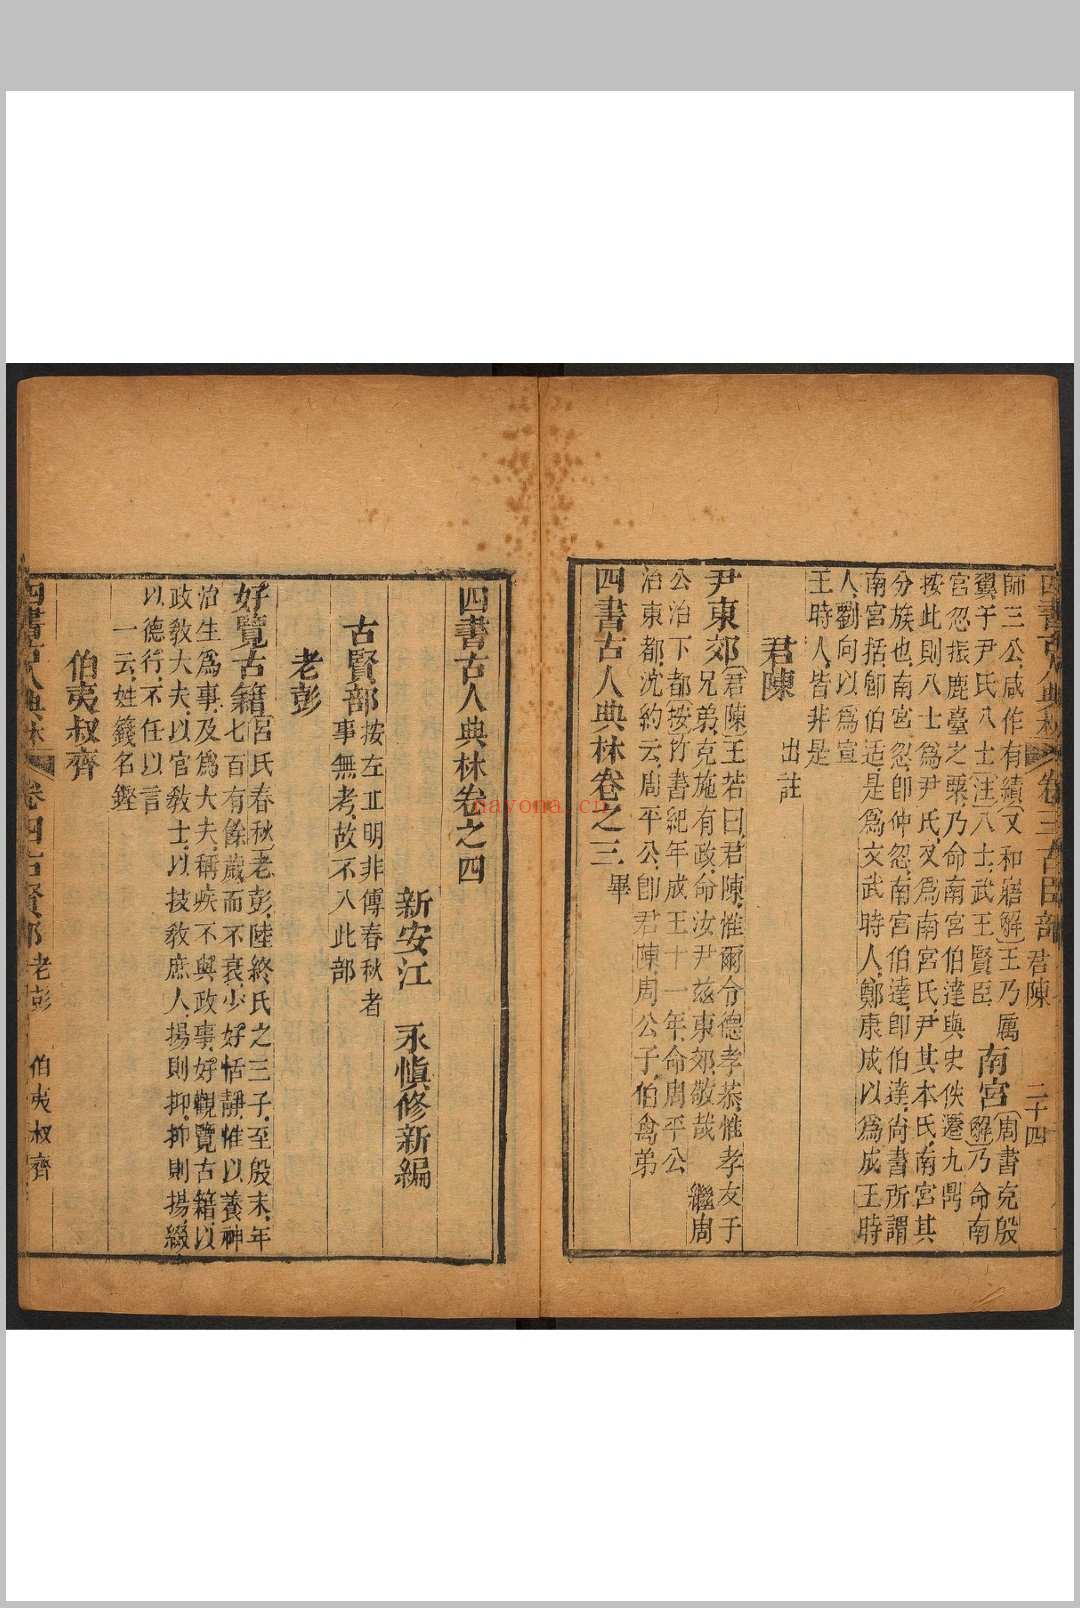 四書古人典林 卷三 古臣部 君陳 二十四
師三公咸作有績又和寤解王乃厲
翼于尹氏八士注八士武王賢臣 南宮 周書克殷
解乃命南
宮忽振鹿臺之粟乃命南宮伯達與史佚遷九鼎
按此則八士爲尹氏又爲南宮氏尹其本氏南宮其
分族也南宮忽卽仲忽南宮伯達卽伯達尚書所謂
南宮括卽伯适是爲文武時人鄭康成以爲成王時
人劉向以爲宣
王時人皆非是
君陳 出註
尹東郊 君陳王若曰君陳惟爾令德孝恭惟孝友于
兄弟克施有政命汝尹兹東郊敬哉 繼周
公治下都 按竹書紀年成王十一年命周平公
治東都沈約云周平公卽君陳周公子伯禽弟
四書古人典林卷之三 畢
四書古人典林卷之四
新安江 永慎修新編
古賢部 按左丘明非傳春秋者
事無考故不入此部
老彭
好覽古籍 宮氏春秋老彭陸終氏之三子至殷末年
七百有餘歲而不衰少好恬靜惟以養神
治生爲事及爲大夫稱疾不與政事好觀覽古籍以
政敎大夫以官敎士以技敎庶人揚則抑抑則揚綴
以德行不任以言
一云姓籛名鏗
伯夷叔齊
四書古人典林 卷四 古賢部 老彭 伯夷叔齊
nayona.cn